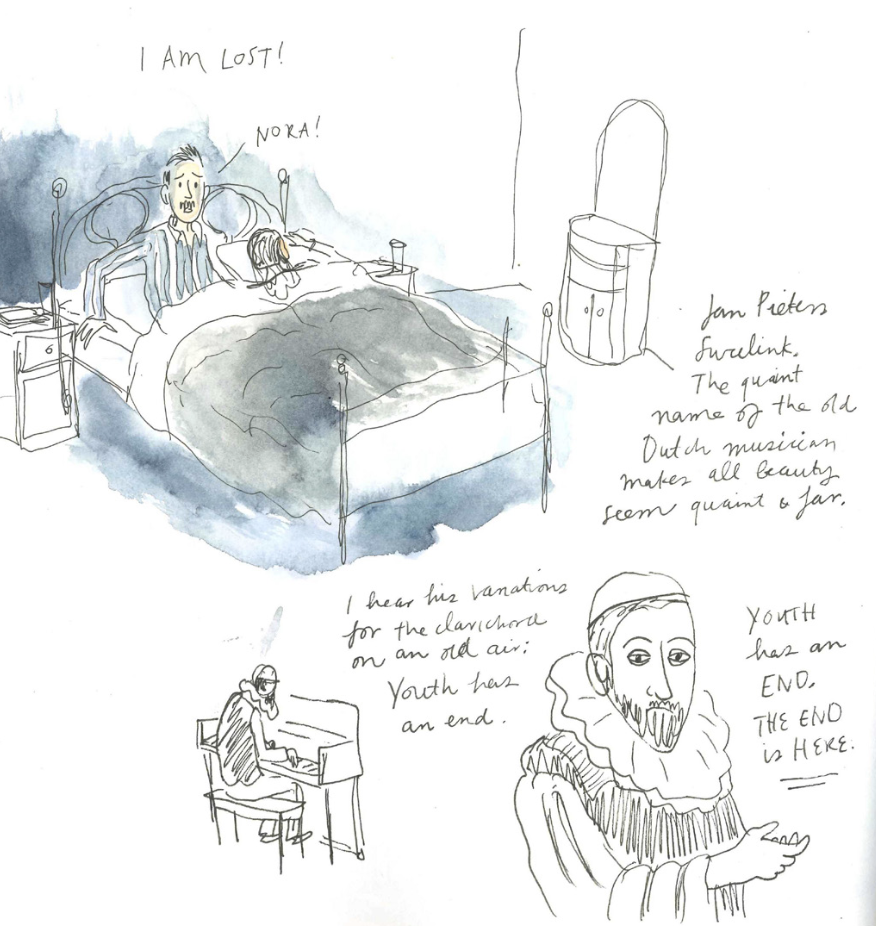 I AM LOST!
NORA!
Jan Pieters
Sweelink.
The quaint
name of the old
Dutch musician
makes all beauty
seem quaint & far.
I hear his variations
for the clavichord
on an old air:
Youth has
an end.
YOUTH
has an
END.
THE END
is HERE.